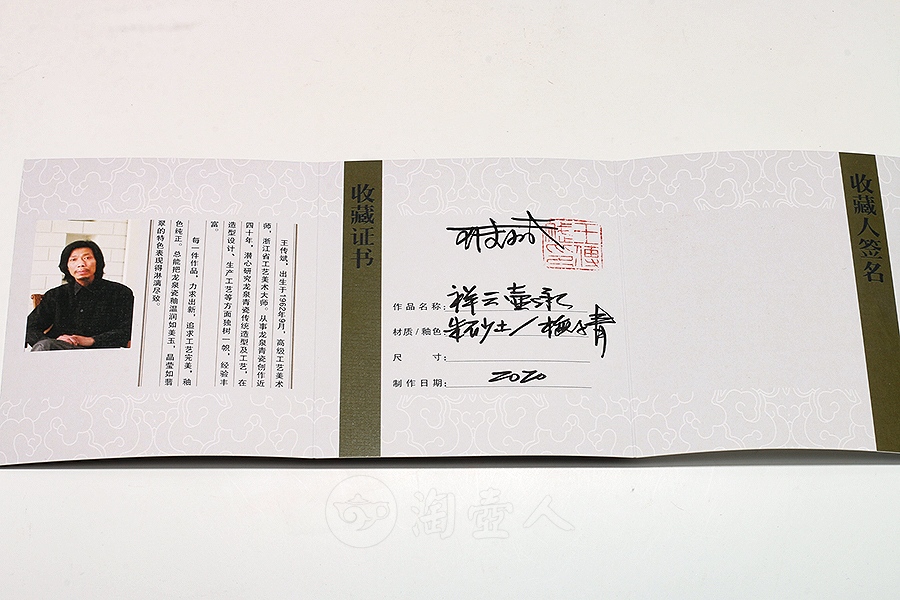 王传斌，出生于1962年9月，高级工艺美术
师，浙江省工艺美术大师。从事龙泉青瓷创作近
四十年，潜心研究龙泉青瓷传统造型及工艺，在
造型设计、生产工艺等方面独树一帜，经验丰
富。
每一件作品，力求出新，追求工艺完美，釉
色纯正。总能把龙泉瓷釉温润如美玉，晶莹如翡
翠的特色表现得淋漓尽致。
收藏证书
作品名称：祥云壶
材质/釉色：朱砂土/梅子青
尺寸：
制作日期：2020
收藏人签名
淘壶人